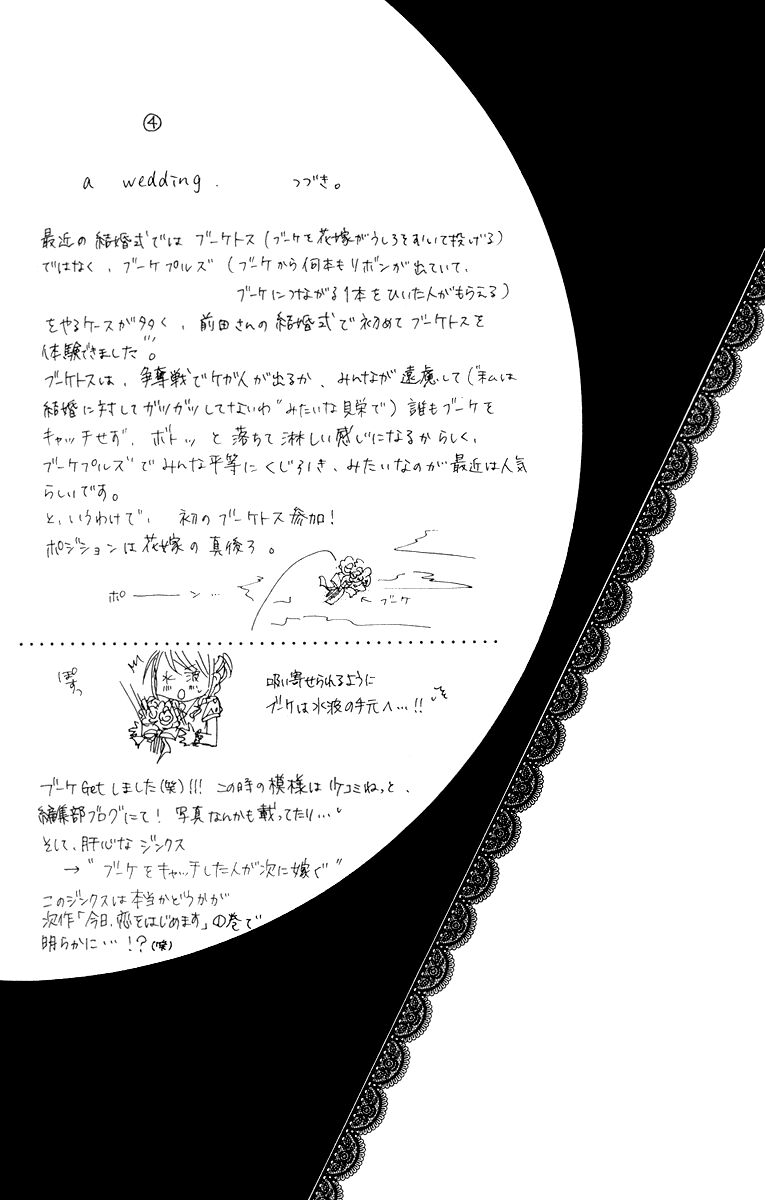 ④
a wedding. つづき。
最近の結婚式では ブーケトス(ブーケを花嫁がうしろをむいて投げる)
ではなく、ブーケプルズ (ブーケから何本もリボンが出ていて、
ブーケにつながる1本をひいた人がもらえる)
をやるケースが多く、前田さんの結婚式で初めてブーケトスを
体験できました。
ブーケトスは、争奪戦でケガ人が出るか、みんなが遠慮して("私は
結婚に対してガツガツしてないわ"みたいな見栄で)誰もブーケを
キャッチせず、ボトッ と落ちて淋しい感じになるからしく、
ブーケプルズでみんな平等にくじ引き、みたいなのが最近は人気
らしいです。
と、いうわけで、初のブーケトス参加!
ポジションは花嫁の真後ろ。
ポーーーン…
←ブーケ
ぽすっ
水波
吸い寄せられるように
ブーケは水波の手元へ…!!
ブーケGetしました(笑)!!! この時の模様はケコミねっと、
編集部ブログにて! 写真なんかも載ってたり…
そして、肝心なジンクス
→"ブーケをキャッチした人が次に嫁ぐ"
このジンクスは本当かどうかが
次作「今日、恋をはじめます」の巻で
明らかに…!?(笑)